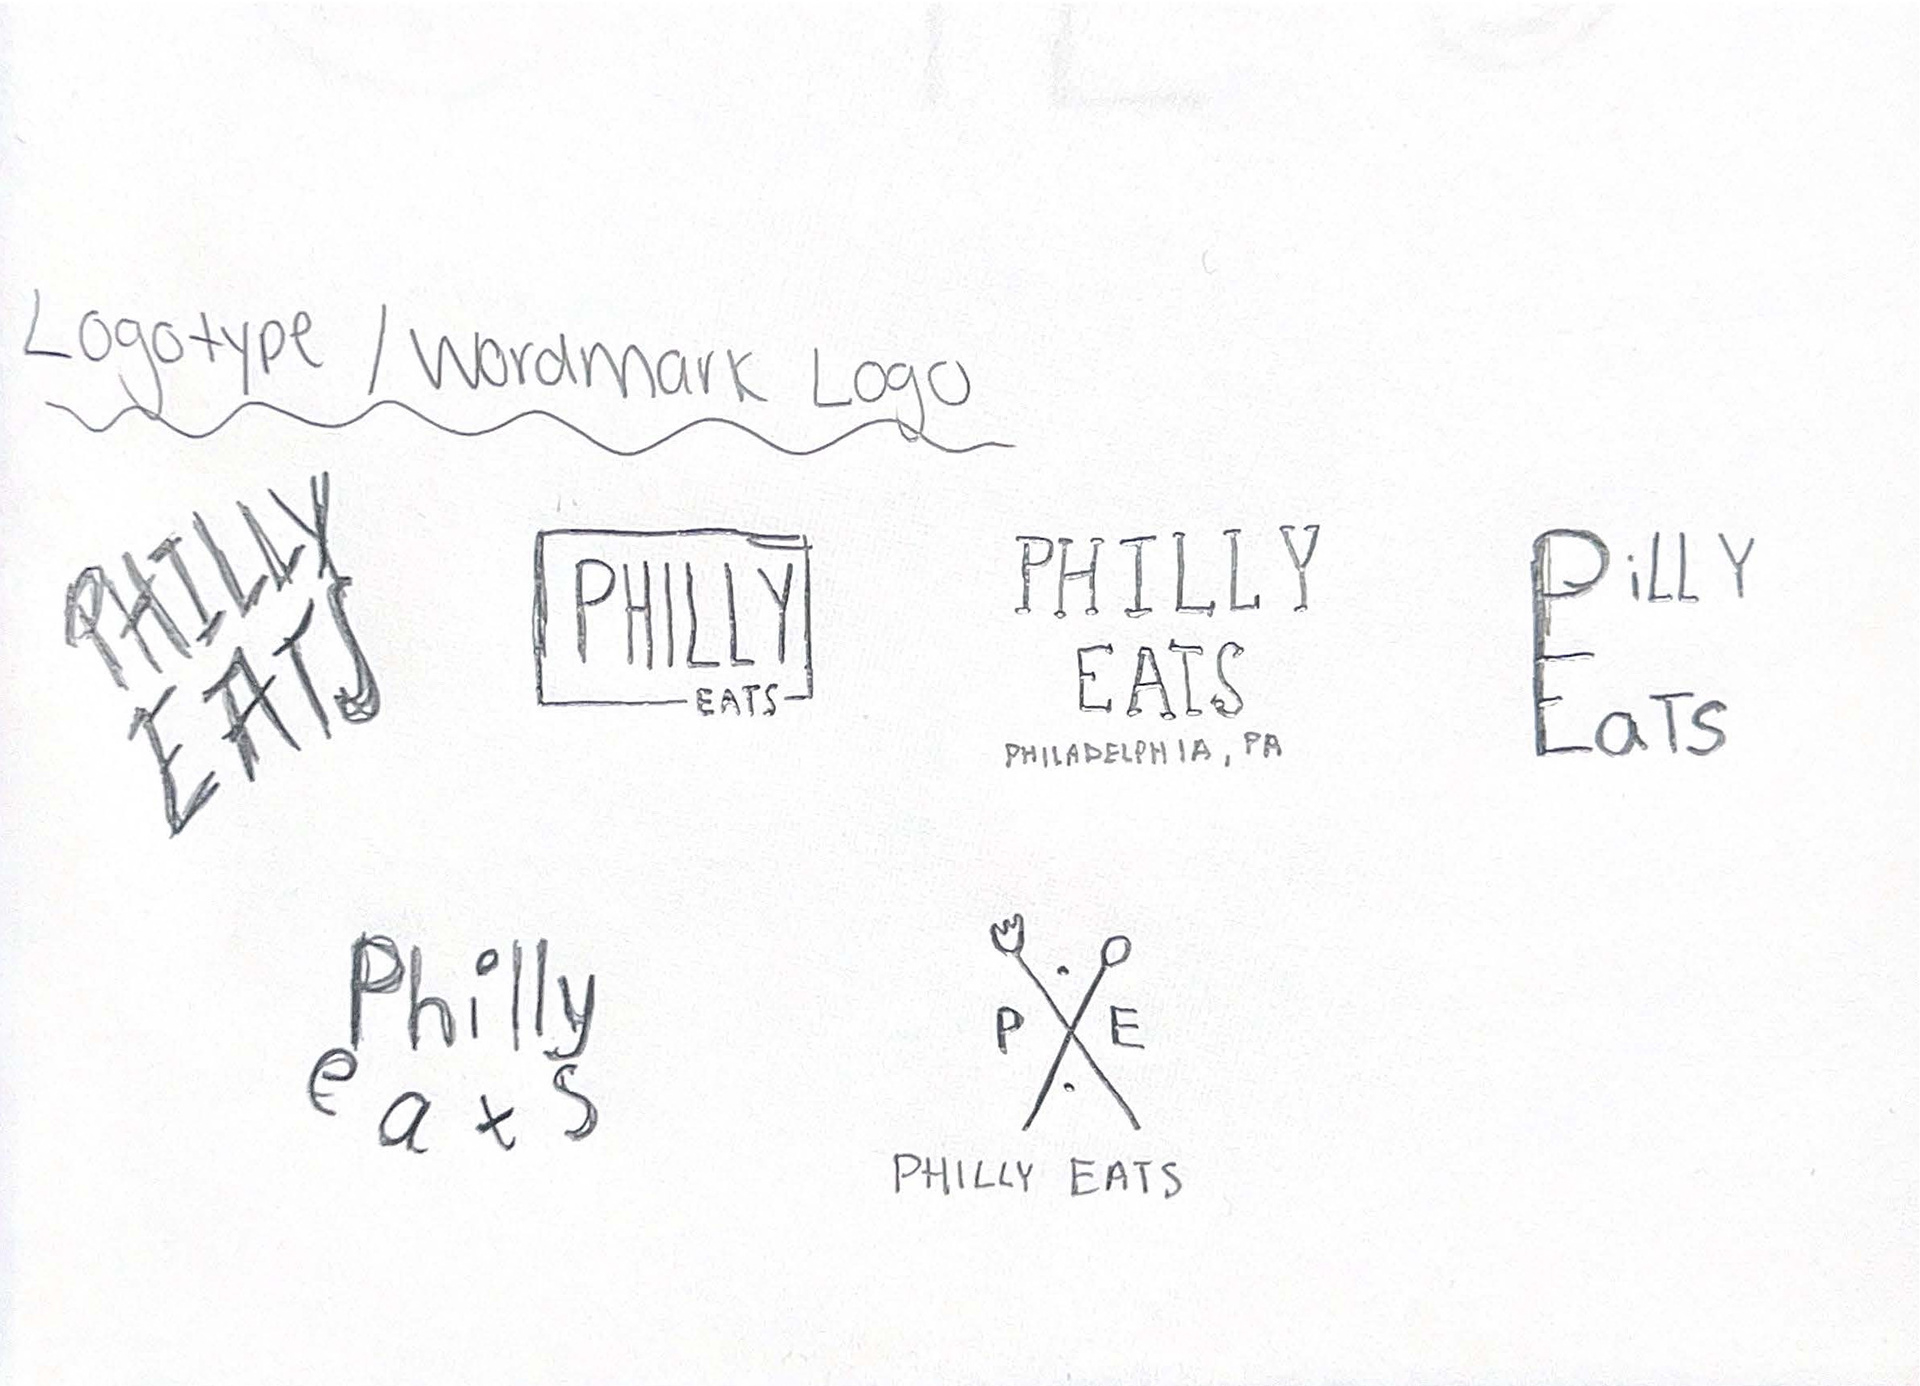 Logotype / Wordmark Logo
PHILLY
EATS
PHILLY
EATS
PHILLY
EATS
PHILADELPHIA, PA
PiLLY
EaTs
Philly
eats
P E
PHILLY EATS